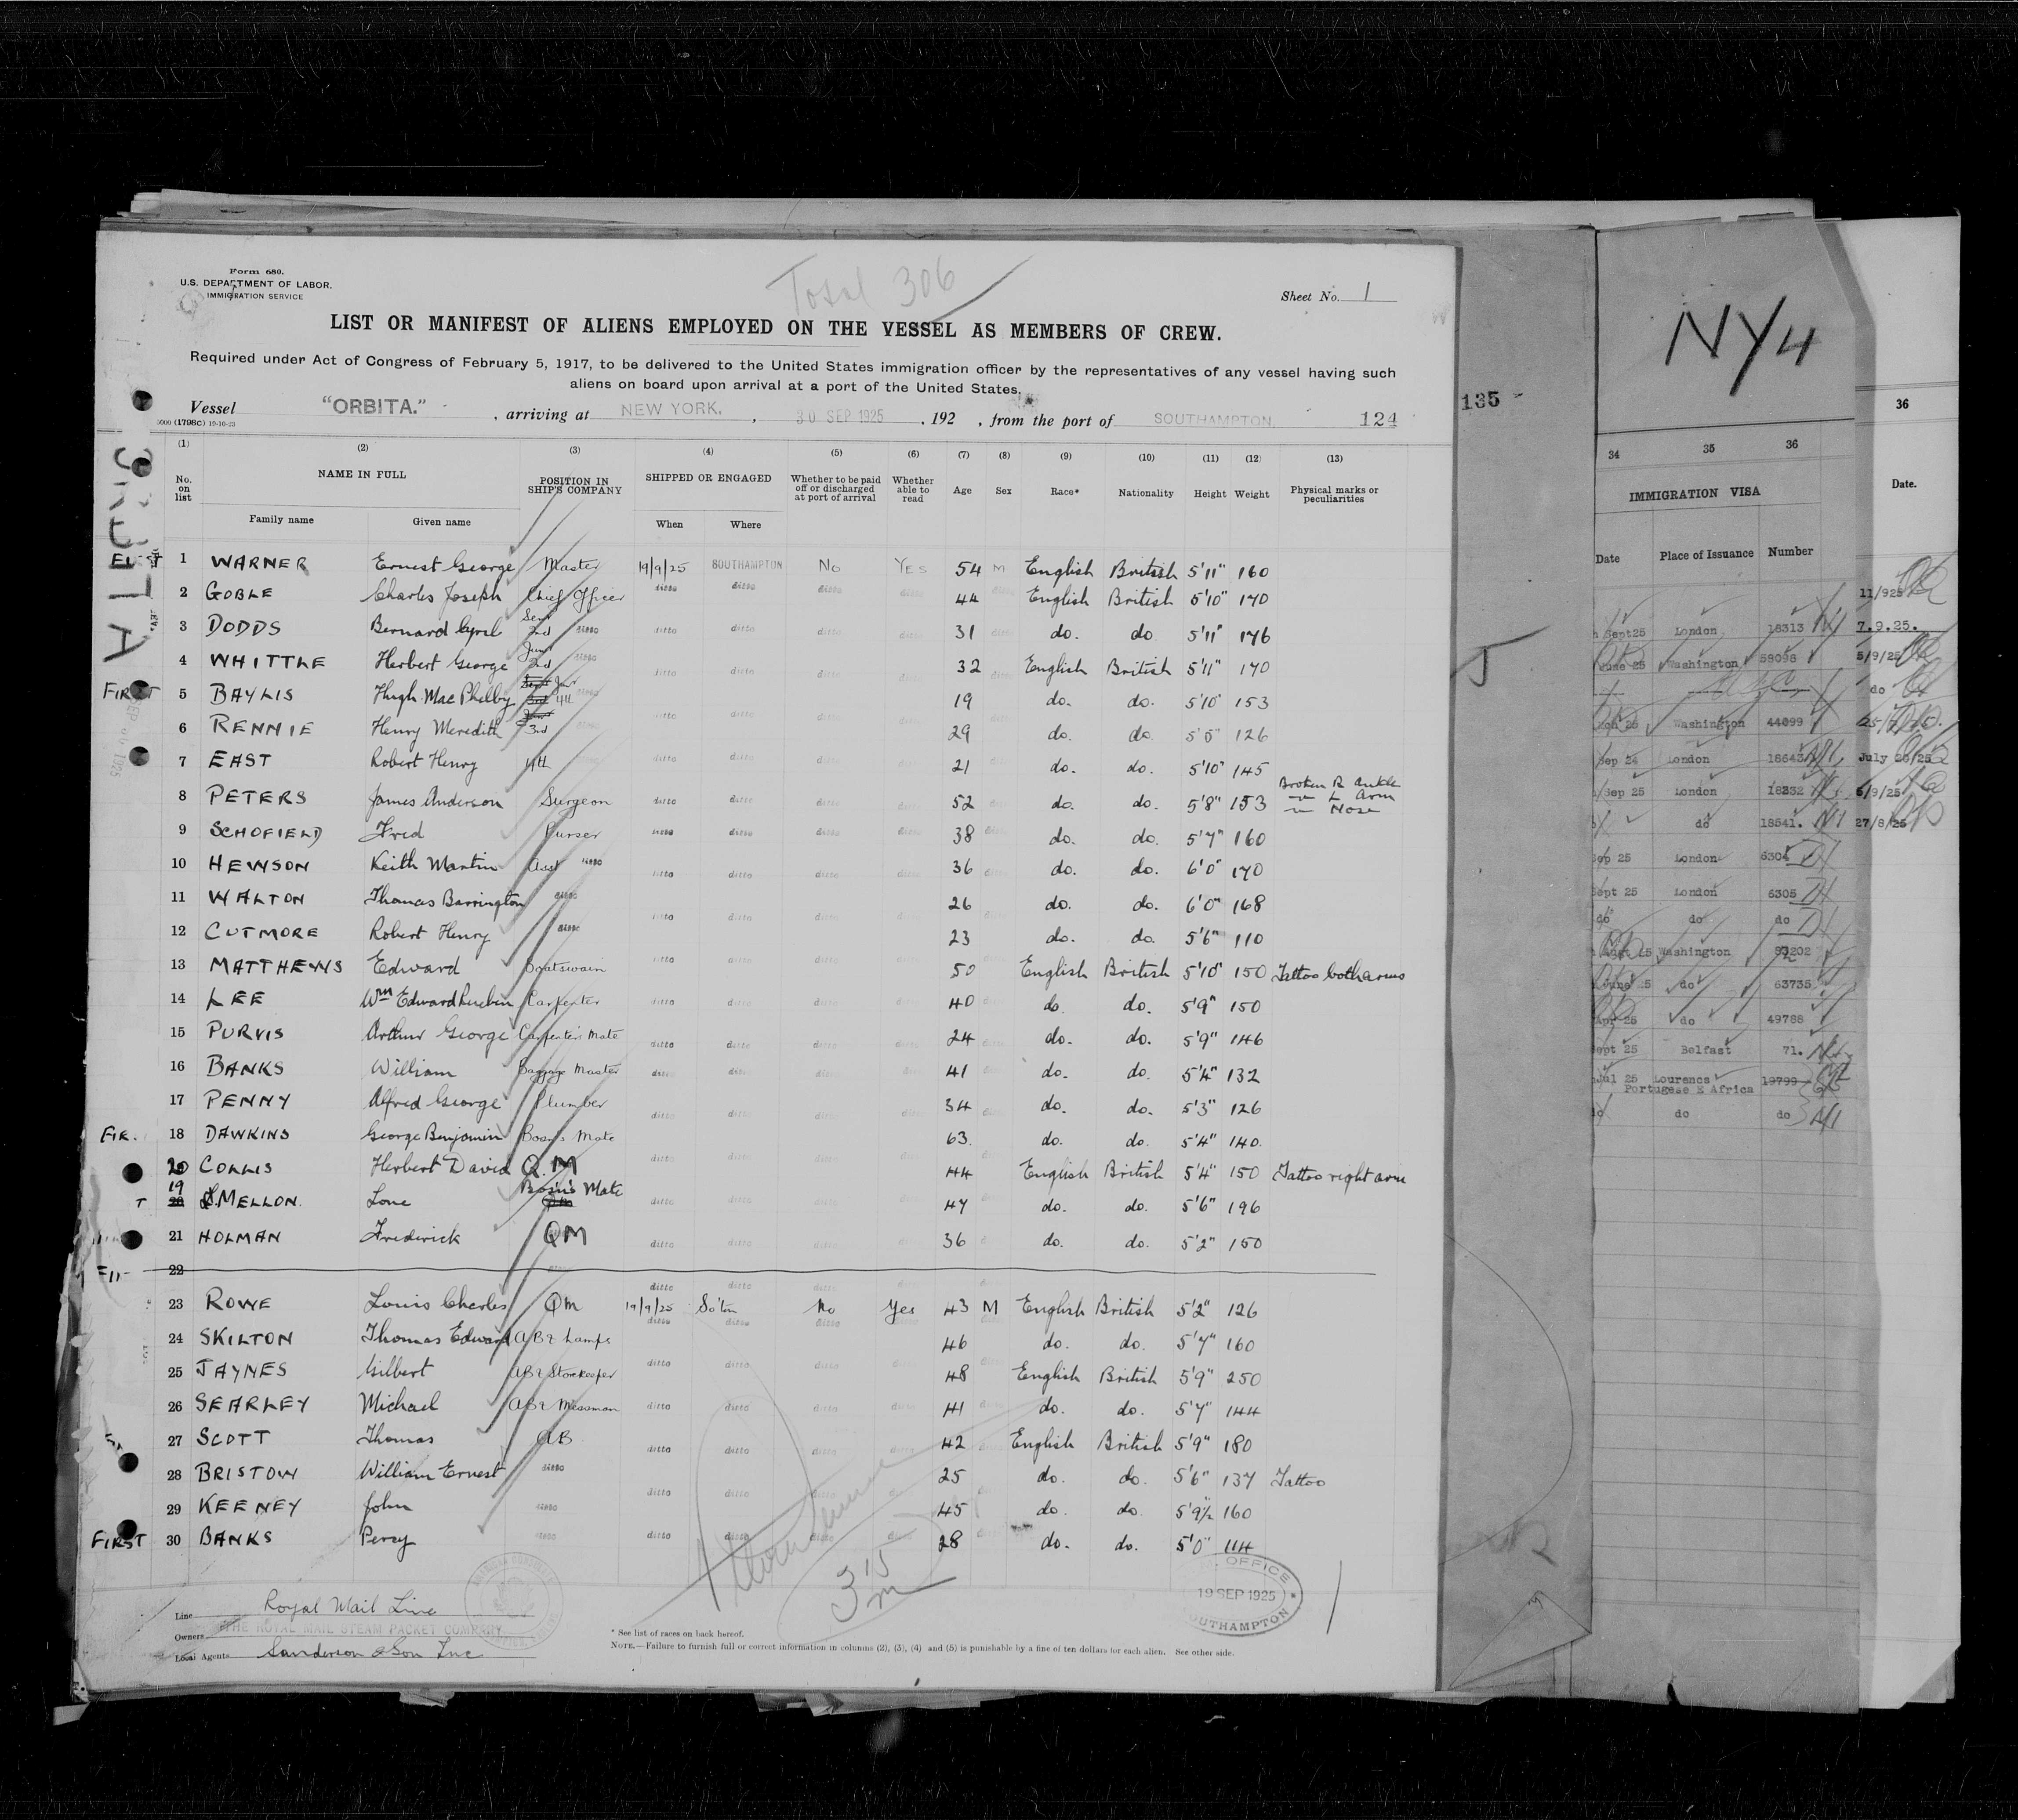 Form 680.
U.S. DEPARTMENT OF LABOR,
IMMIGRATION SERVICE
Total 306
Sheet No. 1
LIST OR MANIFEST OF ALIENS EMPLOYED ON THE VESSEL AS MEMBERS OF CREW.
Required under Act of Congress of February 5, 1917, to be delivered to the United States immigration officer by the representatives of any vessel having such
aliens on board upon arrival at a port of the United States.
Vessel "ORBITA." , arriving at NEW YORK. , 30 SEP 1925 , 192 , from the port of SOUTHAMPTON. 124
5000 (1798C) 19-10-23
(1) (2) (3) (4) (5) (6) (7) (8) (9) (10) (11) (12) (13)
No. on list NAME IN FULL POSITION IN SHIP'S COMPANY SHIPPED OR ENGAGED Whether to be paid off or discharged at port of arrival Whether able to read Age Sex Race* Nationality Height Weight Physical marks or peculiarities
Family name Given name When Where
1 WARNER Ernest George Master 19/9/25 SOUTHAMPTON No YES 54 M English British 5'11" 160
2 GOBLE Charles Joseph Chief Officer ditto ditto ditto ditto 44 ditto English British 5'10" 170
3 DODDS Bernard Cyril Senr 2nd ditto ditto ditto ditto ditto 31 ditto do. do. 5'11" 176
4 WHITTLE Herbert George Junr 2nd ditto ditto ditto ditto ditto 32 English British 5'11" 170
FIRST 5 BAYLIS Hugh Mac Phelby Junr 4th 19 do. do. 5'10" 153
6 RENNIE Henry Meredith 3rd ditto ditto ditto ditto 29 do. do. 5'5" 126
7 EAST Robert Henry 4th ditto ditto ditto 21 do. do. 5'10" 145
8 PETERS James Anderson Surgeon ditto ditto ditto 52 do. do. 5'8" 153 Broken R ankle
L Arm
Nose
9 SCHOFIELD Fred Purser ditto ditto ditto 38 do. do. 5'7" 160
10 HEWSON Keith Martin Asst ditto ditto ditto ditto 36 do. do. 6'0" 170
11 WALTON Thomas Barrington ditto 26 do. do. 6'0" 168
12 CUTMORE Robert Henry ditto ditto ditto ditto 23 do. do. 5'6" 110
13 MATTHEWS Edward Boatswain ditto ditto ditto 50 English British 5'10" 150 Tattoo both arms
14 LEE Wm Edward Reuben Carpenter ditto ditto ditto 40 do. do. 5'9" 150
15 PURVIS Arthur George Carpenter's Mate ditto ditto ditto 24 do. do. 5'9" 146
16 BANKS William Baggage Master ditto ditto ditto 41 do. do. 5'4" 132
17 PENNY Alfred George Plumber ditto ditto ditto 34 do. do. 5'3" 126
FIR. 18 DAWKINS George Benjamin Bosn's Mate 63. do. do. 5'4" 140.
20 COLLIS Herbert David Q.M ditto ditto ditto 44 English British 5'4" 150 Tattoo right arm
19 MELLON. Lone Bosn's Mate ditto ditto ditto 47 do. do. 5'6" 196
21 HOLMAN Frederick QM ditto ditto ditto 36 do. do. 5'2" 150
22
23 ROWE Louis Charles QM 19/9/25 So'ton No Yes 43 M English British 5'2" 126
24 SKILTON Thomas Edward AB & Lamps ditto ditto ditto ditto 46 do. do. 5'7" 160
25 JAYNES Gilbert AB & Storekeeper ditto ditto ditto 48 English British 5'9" 250
26 SEARLEY Michael AB & Messman ditto ditto ditto 41 do. do. 5'7" 144
27 SCOTT Thomas AB ditto ditto ditto 42 English British 5'9" 180
28 BRISTOW William Ernest ditto ditto ditto ditto 25 do. do. 5'6" 137 Tattoo
29 KEENEY John ditto 45 do. do. 5'9½ 160
FIRST 30 BANKS Percy ditto ditto ditto ditto 28 do. do. 5'0" 114
315
m
Line Royal Mail Line
Owners THE ROYAL MAIL STEAM PACKET COMPANY.
Local Agents Sanderson & Son Inc
OFFICE
19 SEP 1925
SOUTHAMPTON
* See list of races on back hereof.
NOTE.—Failure to furnish full or correct information in columns (2), (3), (4) and (5) is punishable by a fine of ten dollars for each alien. See other side.
135
NY4
36
34 35 36
IMMIGRATION VISA
Date.
Date Place of Issuance Number
11/925
Sept25 London 18313 7.9.25.
June 25 Washington 58096 5/9/25
do
25 Washington 44099
Sep 24 London 18643 July
Sep 25 London 18232 5/9/25
do 18541. 27/8/25
Sep 25 London 6304
Sept 25 London 6305
do do do
25 Washington
June 25 do 63735
Apr 25 do 49788
Sept 25 Belfast 71.
Jul 25 Lourencs 19799
Portugese E Africa
do do do